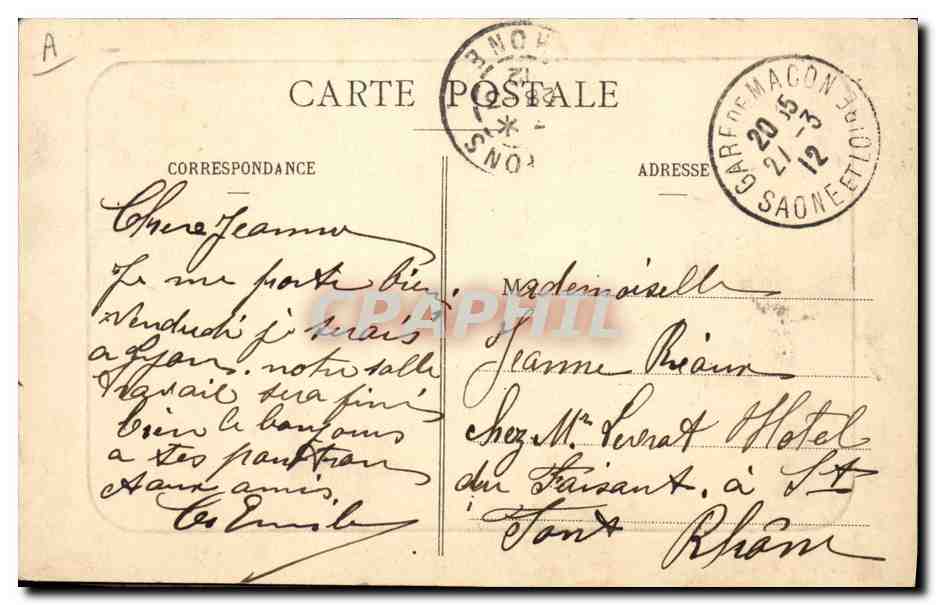 A
CARTE POSTALE
RHONE
12
28
ONS
GARE DE MACON
20 15
21 -3
12
SAONE ET LOIRE
CORRESPONDANCE
ADRESSE
Chere Jeanne
Je me porte bien.
vendredi je serais
a Lyon. notre salle
travail sera finis
bien le bonjour
a tes pantrons
et aux amis.
Emile
CPAPHIL
Mademoiselle
Jeanne Réaux
chez Mr Serrat Hotel
du Faisant. à St
Font Rhône